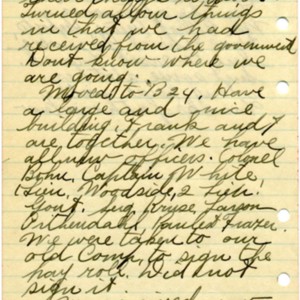 turned in all our things
in that we had
received from the government
Dont know where we
are going.
Moved to B 24. Have
a large and nice
building. Frank and I
are together. We have
all new officers. Colonel
Bohn, Captain White
Lieu. Woodside, 2 Lieu.
Gout. Sug Kryse, Larson
and Frazer.
We were taken to our
old Comp. to sign the
pay roll. Did not
sign it.